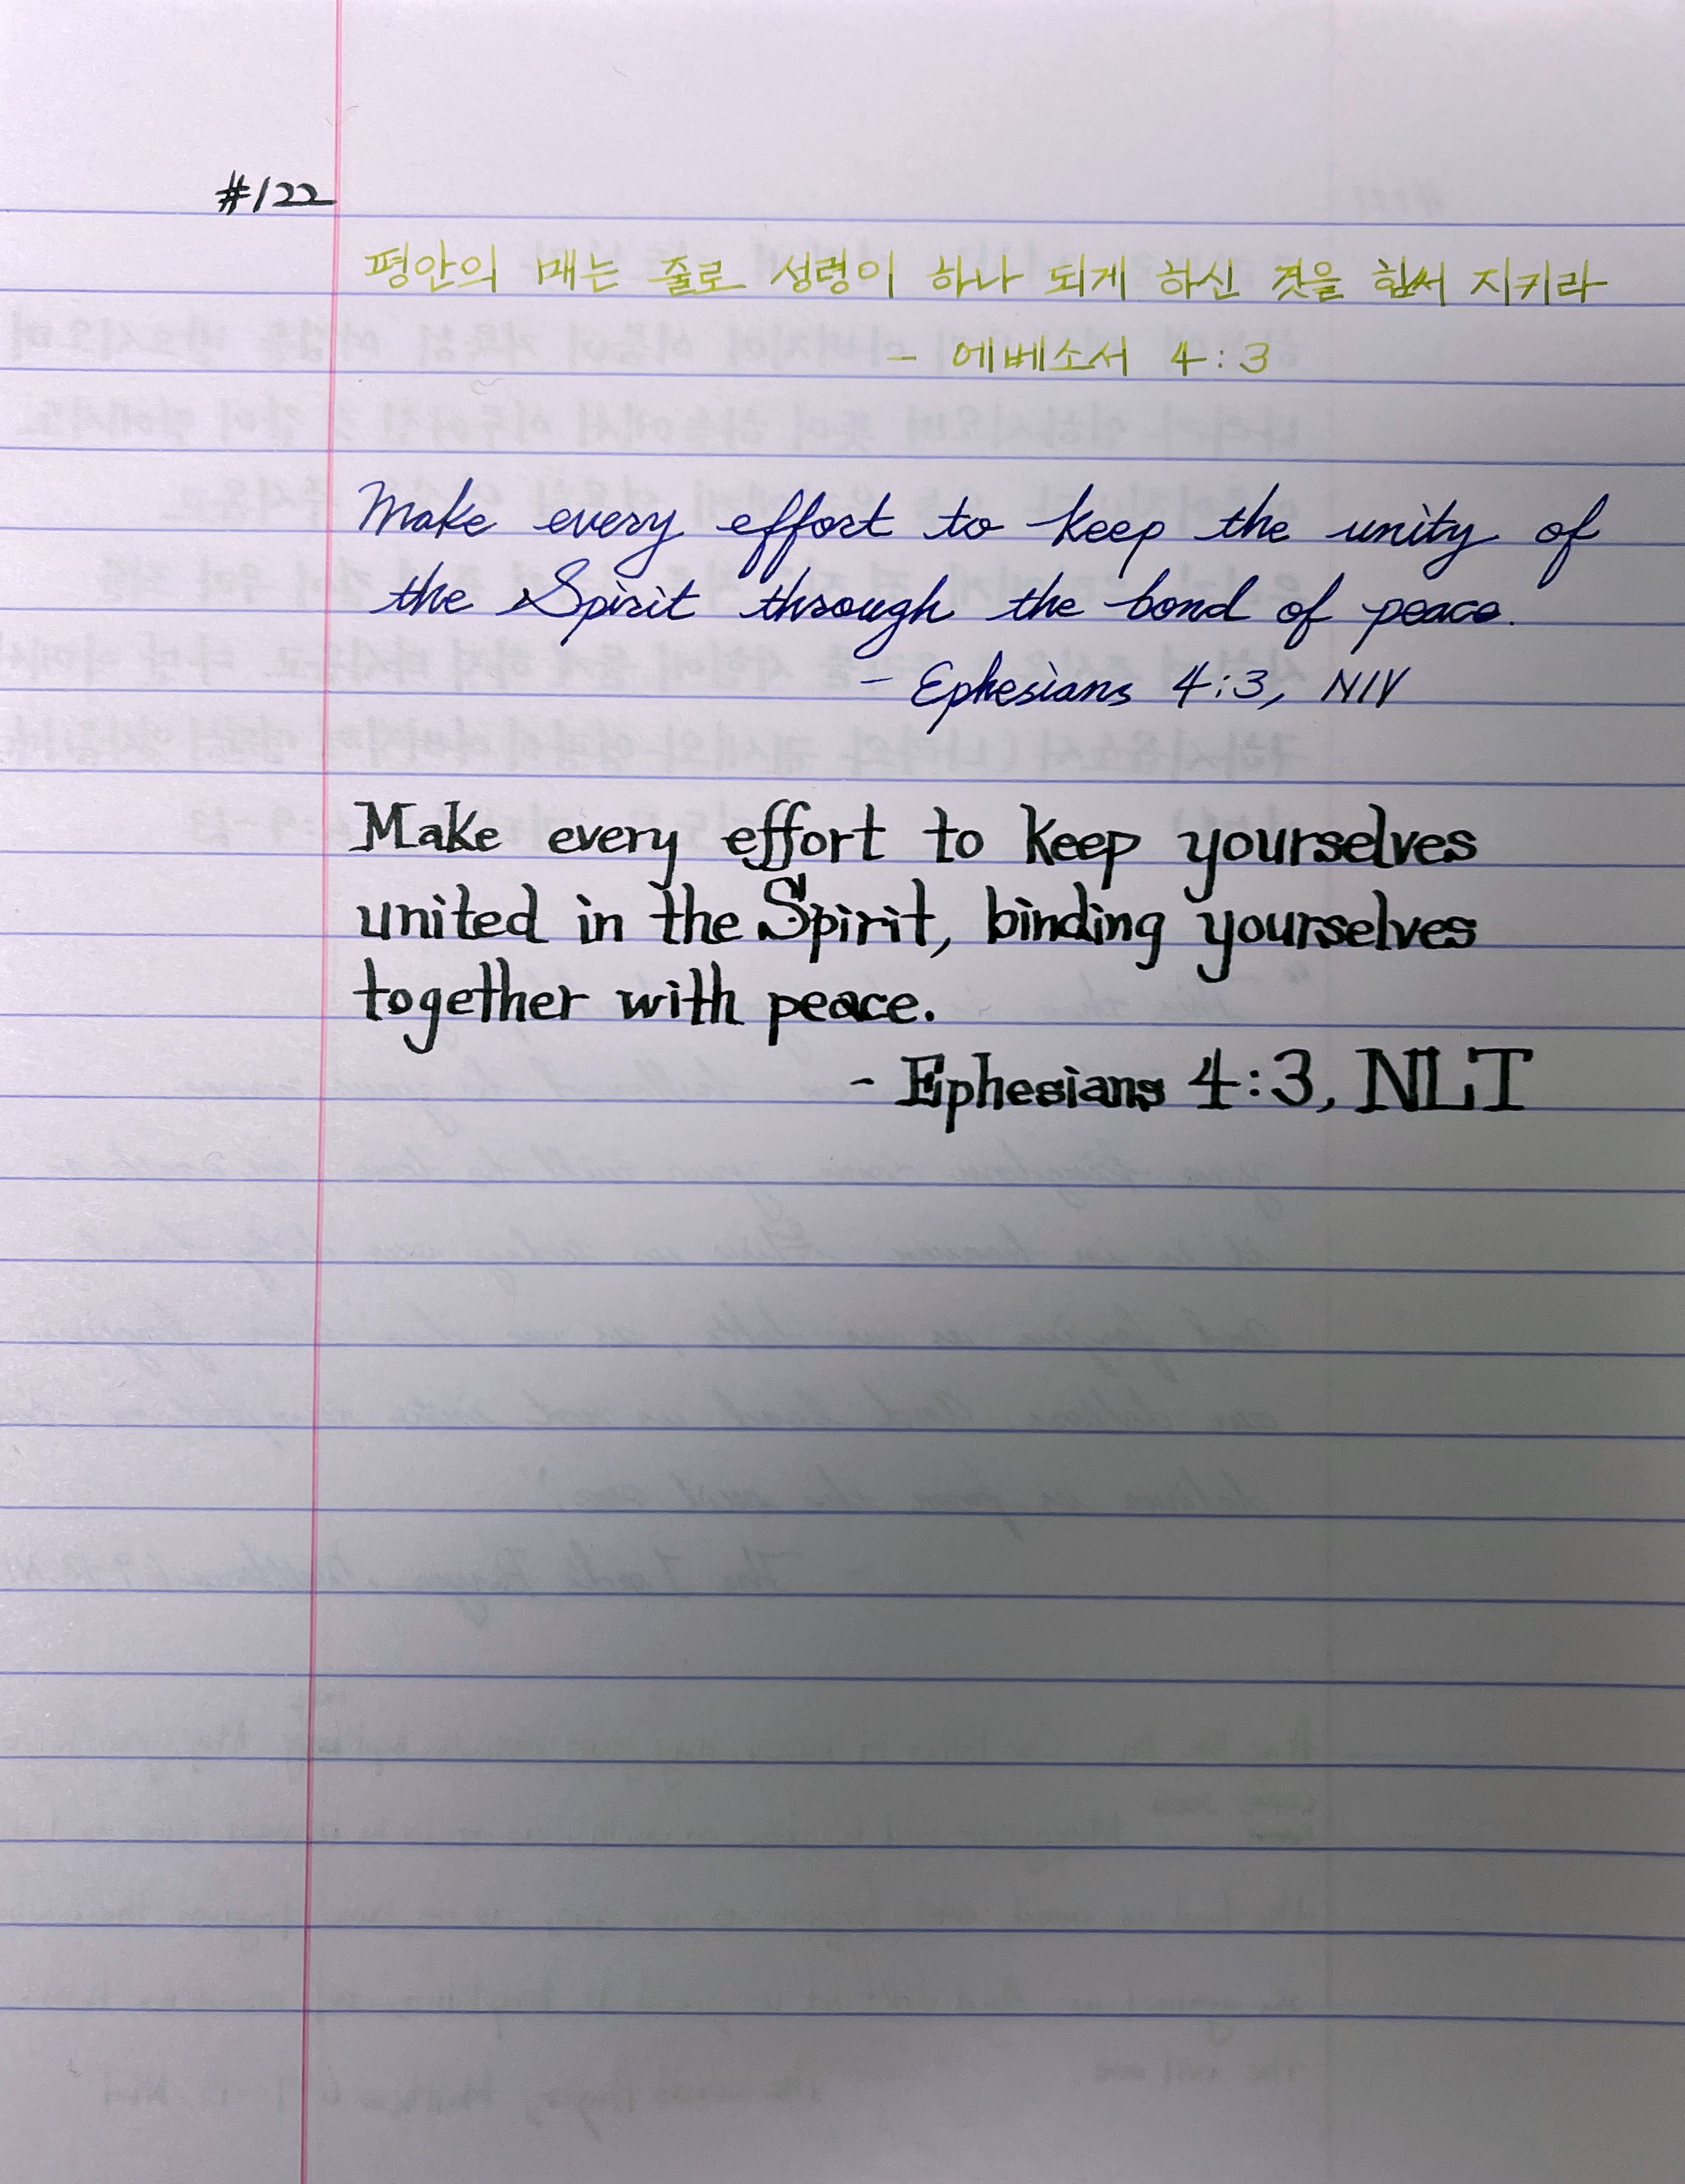 #122
평안의 매는 줄로 성령이 하나 되게 하신 것을 힘써 지키라
- 에베소서 4:3
Make every effort to keep the unity of
the Spirit through the bond of peace.
- Ephesians 4:3, NIV
Make every effort to keep yourselves
united in the Spirit, binding yourselves
together with peace.
- Ephesians 4:3, NLT